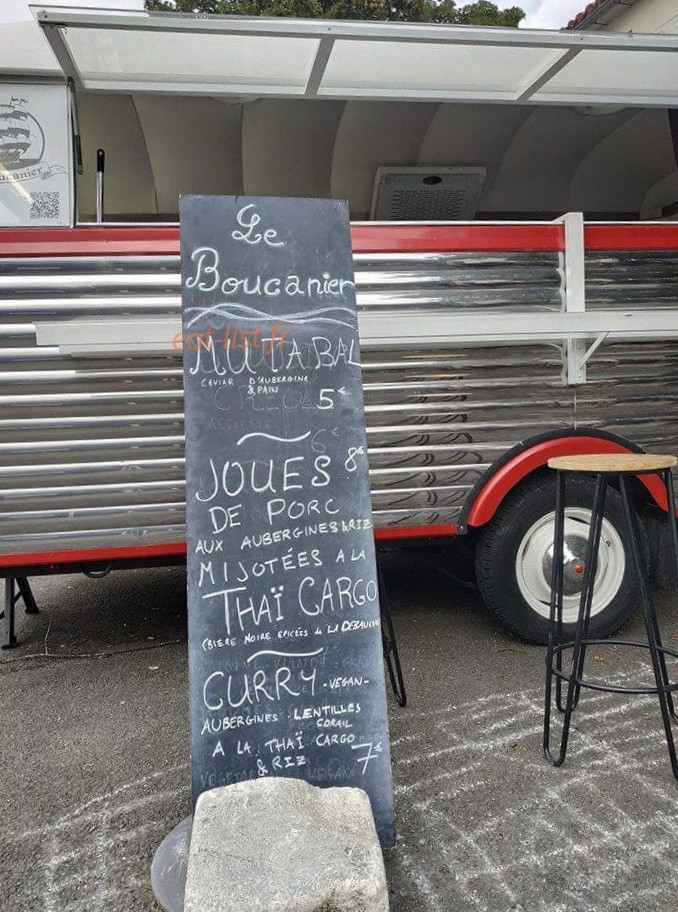 Le
Boucanier
eat-list.fr
MUTABAL
CAVIAR D'AUBERGINE
& PAIN
5€
6€
JOUES 8€
DE PORC
AUX AUBERGINES & RIZ
MIJOTÉES A LA
THAÏ CARGO
(BIÈRE NOIRE EPICÉES de LA DEBAUCHE
CURRY -VEGAN-
AUBERGINES - LENTILLES
CORAIL
A LA THAÏ CARGO
& RIZ 7€
VEGAN